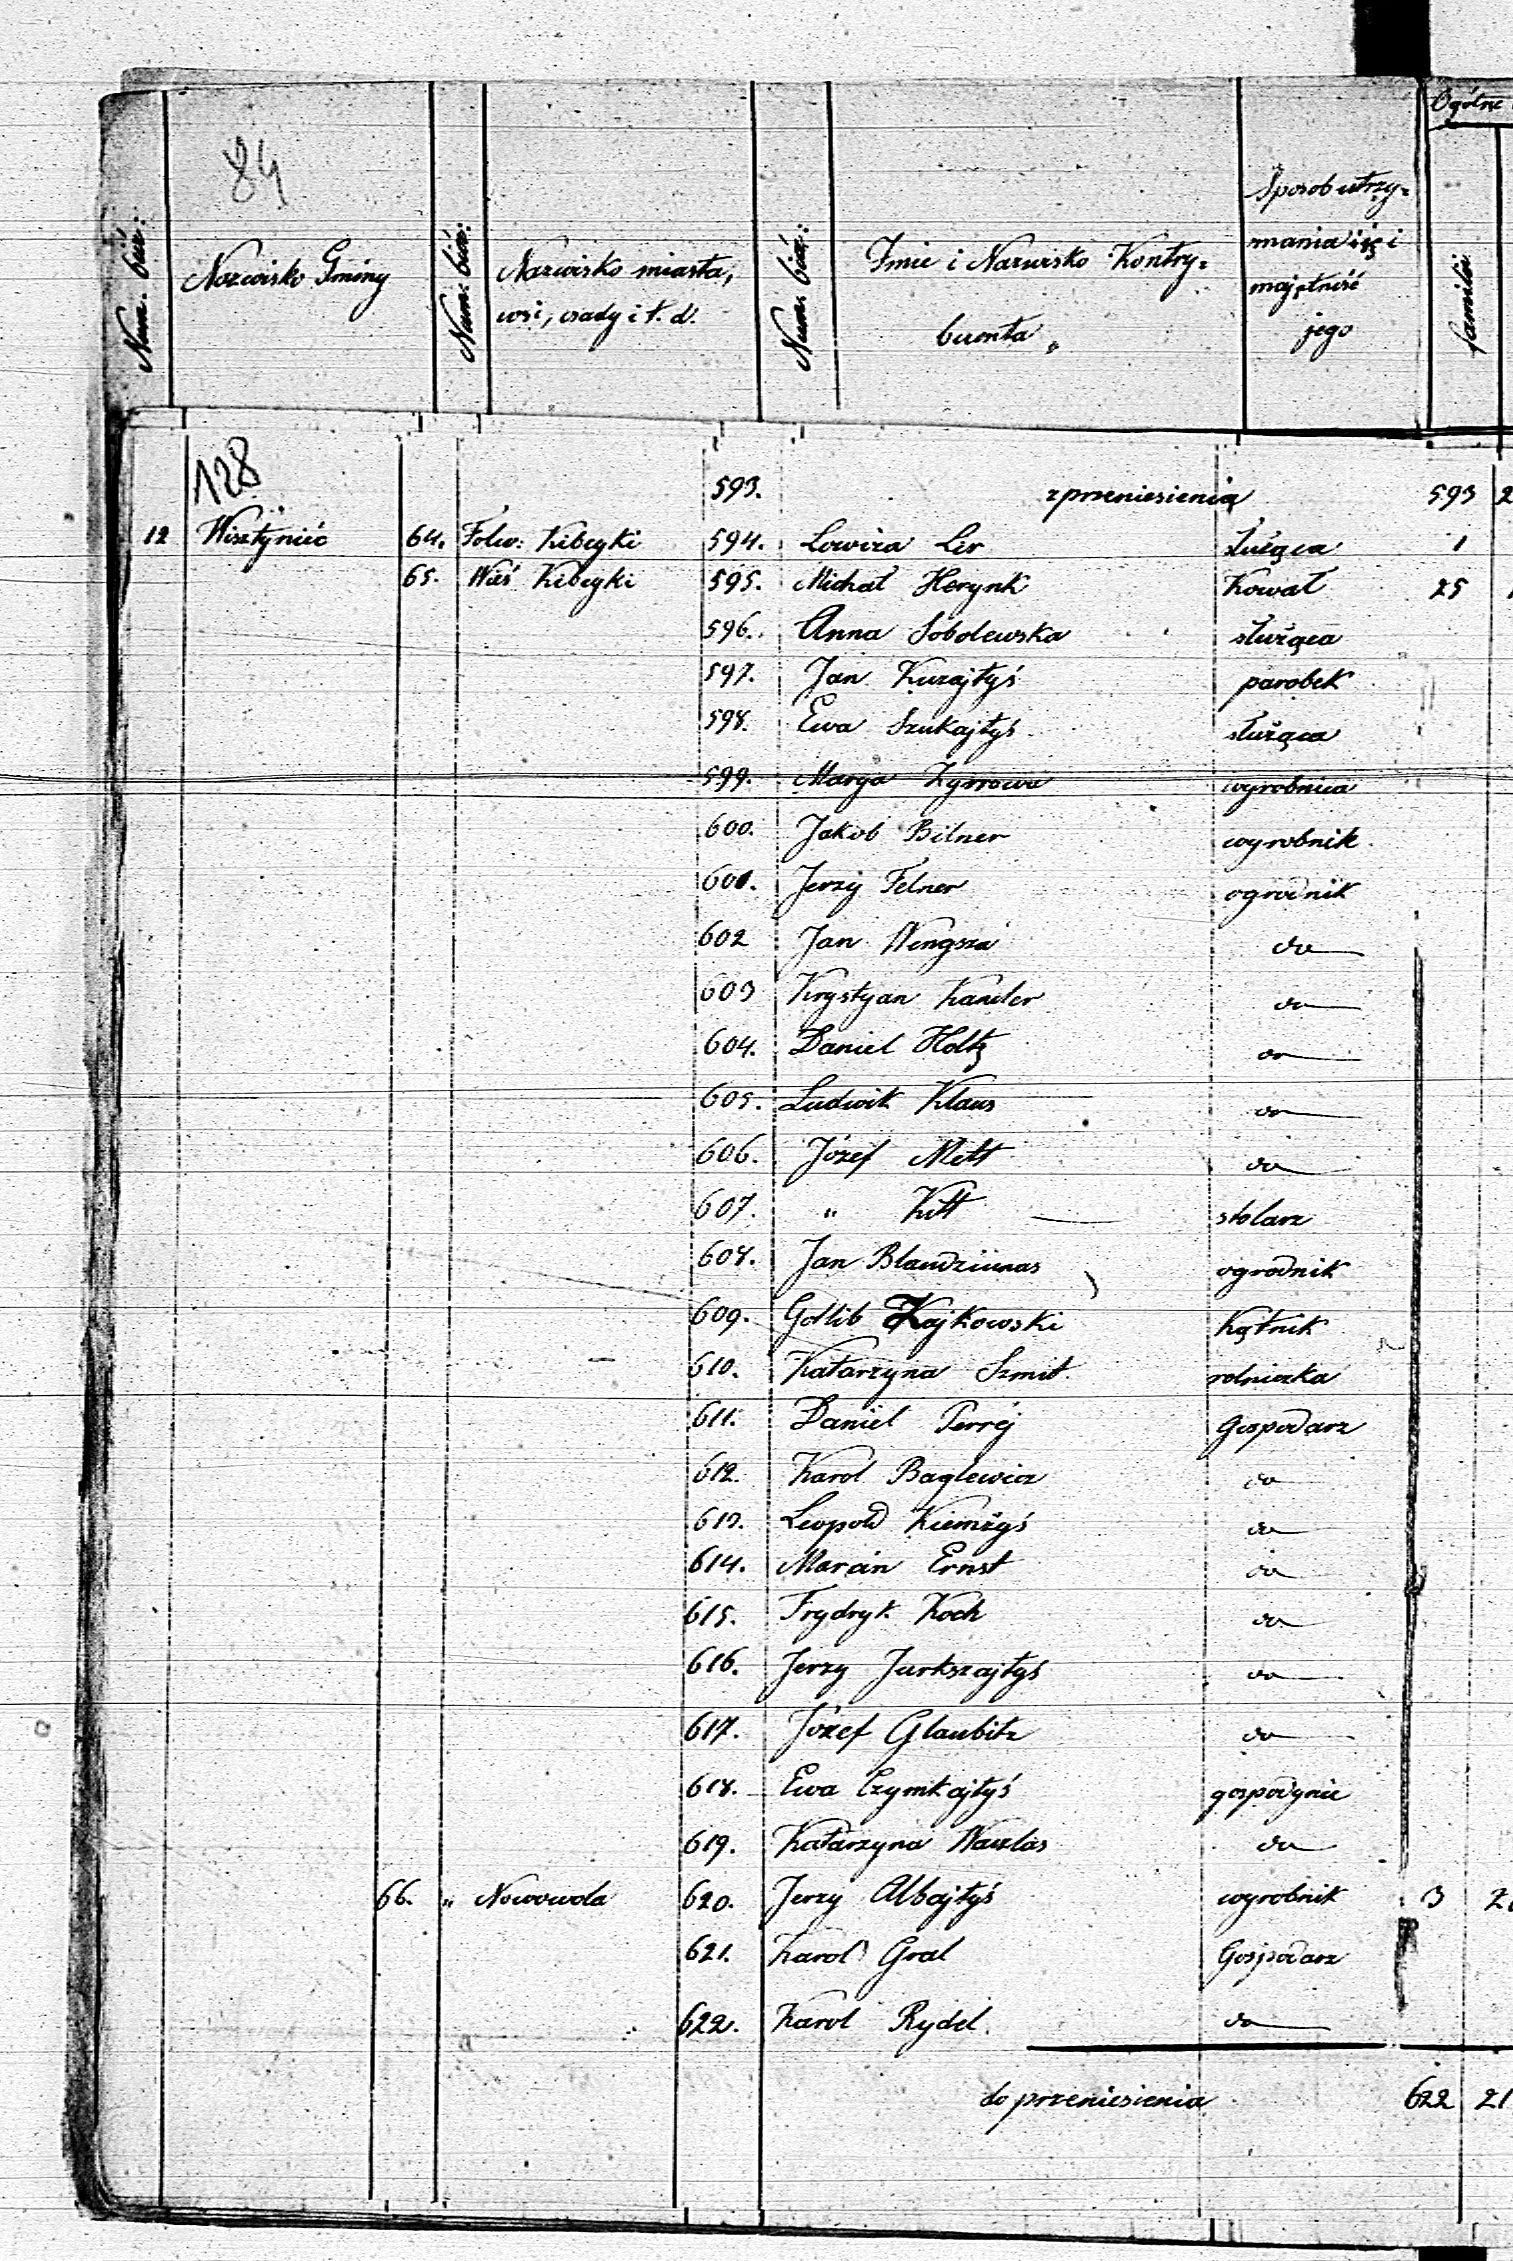 84
Ogólne
Num. bież:
Nazwisko Gminy
Num. bież:
Nazwisko miasta,
wsi, osady i t. d.
Num. bież:
Imie i Nazwisko Kontry=
buenta
Sposob utrzy=
mania się i
majętność
jego
familii
128
593. z przeniesienia 593 2
12 Wisztyniec 64. Folw: Kibeyki 594. Lowiza Ler służąca 1
65. Wieś Kibeyki 595. Michał Herynk Kowal 25
596. Anna Sobolewska służąca
597. Jan Kurajtyś parobek
598. Ewa Szukajtyś służąca
599. Marya wyrobnica
600. Jakób Bilner wyrobnik
601. Jerzy Felner ogrodnik
602 Jan Wengszá do
603 Krystyan Kander do
604. Daniel Holtz do
605. Ludwik Klaus do
606. Józef Mett do
607. " Kitt stolarz
608. Jan Blaudziunas ogrodnik
609. Gotlib Zajkowski Kątnik
610. Katarzyna Szmit rolniczka
611. Daniel Perréj Gospodarz
612. Karol Baglewicz do
613. Leopold Kiemżyś do
614. Marcin Ernst do
615. Frydryk Koch do
616. Jerzy Jurkszajtyś do
617. Józef Glaubitz do
618. Ewa Czymkajtyś gospodynie
619. Katarzyna Waszlas do
66. " Nowowola 620. Jerzy Albajtyś wyrobnik 3
621. Karol Gral Gospodarz
622. Karol Rydel do
do przeniesienia 622 21